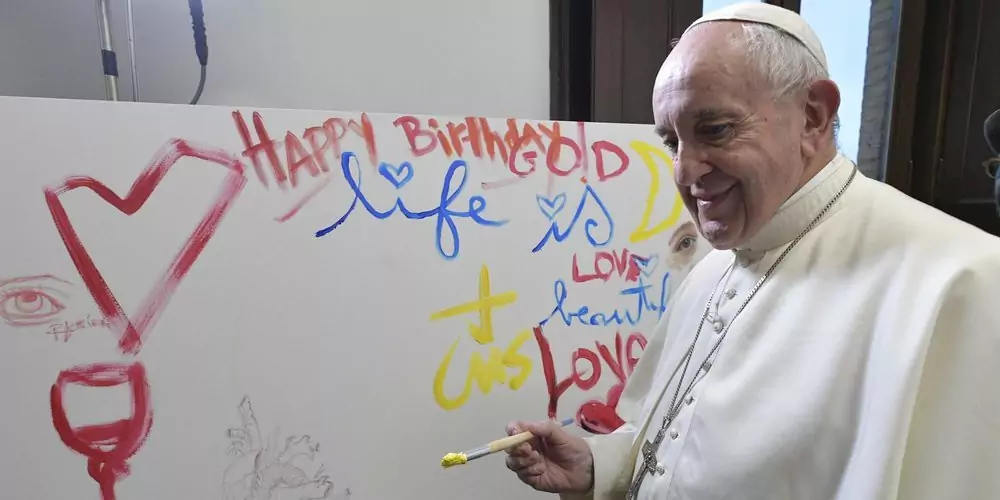 HAPPY BirthDay
GOD
life is
LOVE
beautiful
LOVE